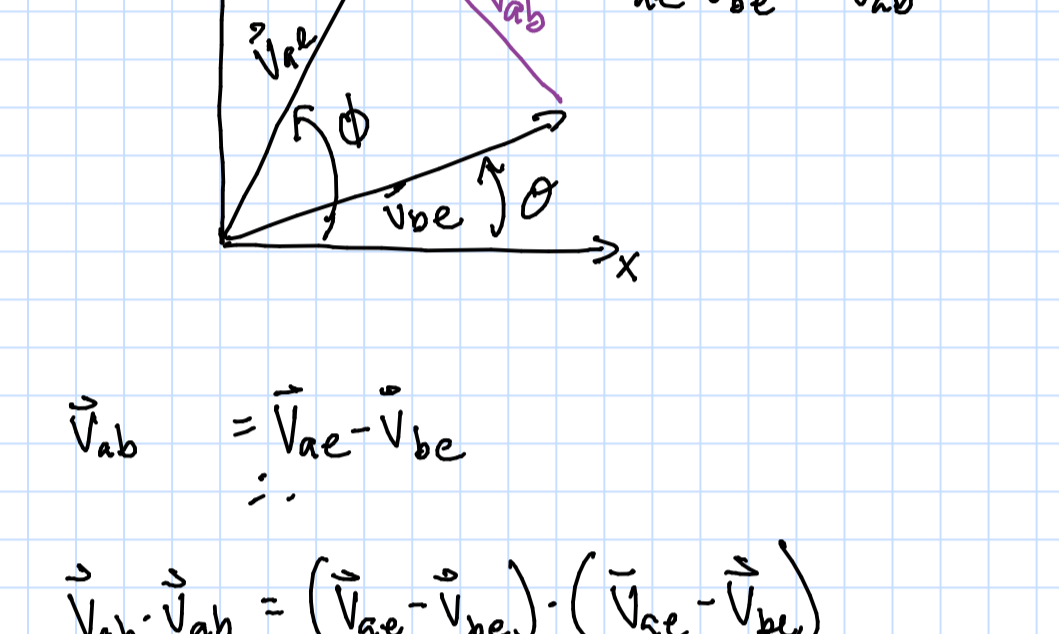 V⃗ab
V⃗ae
ϕ
V⃗be
θ
x
V⃗ab = V⃗ae - V⃗be
∴
V⃗ab · V⃗ab = (V⃗ae - V⃗be) · (V̄ae - V⃗be)